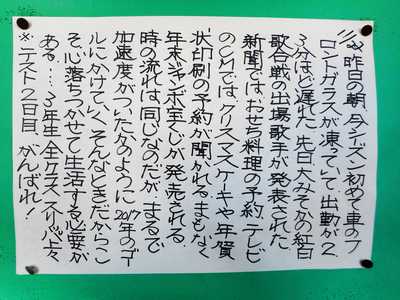 11/22 昨日の朝、今シーズン初めて車のフ
ロントガラスが凍っていて出勤が2
3分ほど遅れた。先日、大みそかの紅白
歌合戦の出場歌手が発表された。
新聞では、おせち料理の予約、テレビ
のCMでは、クリスマスケーキや年賀
状印刷の予約が聞かれる。まもなく
年末ジャンボ宝くじが発売される。
時の流れは同じなのだが、まるで
加速度がついたかのように2017年のゴー
ルにかけていく。そんなときだからこ
そ、心落ちつかせて生活する必要が
ある…。3年生全クラススリッパ上々
※テスト2日目、がんばれ!